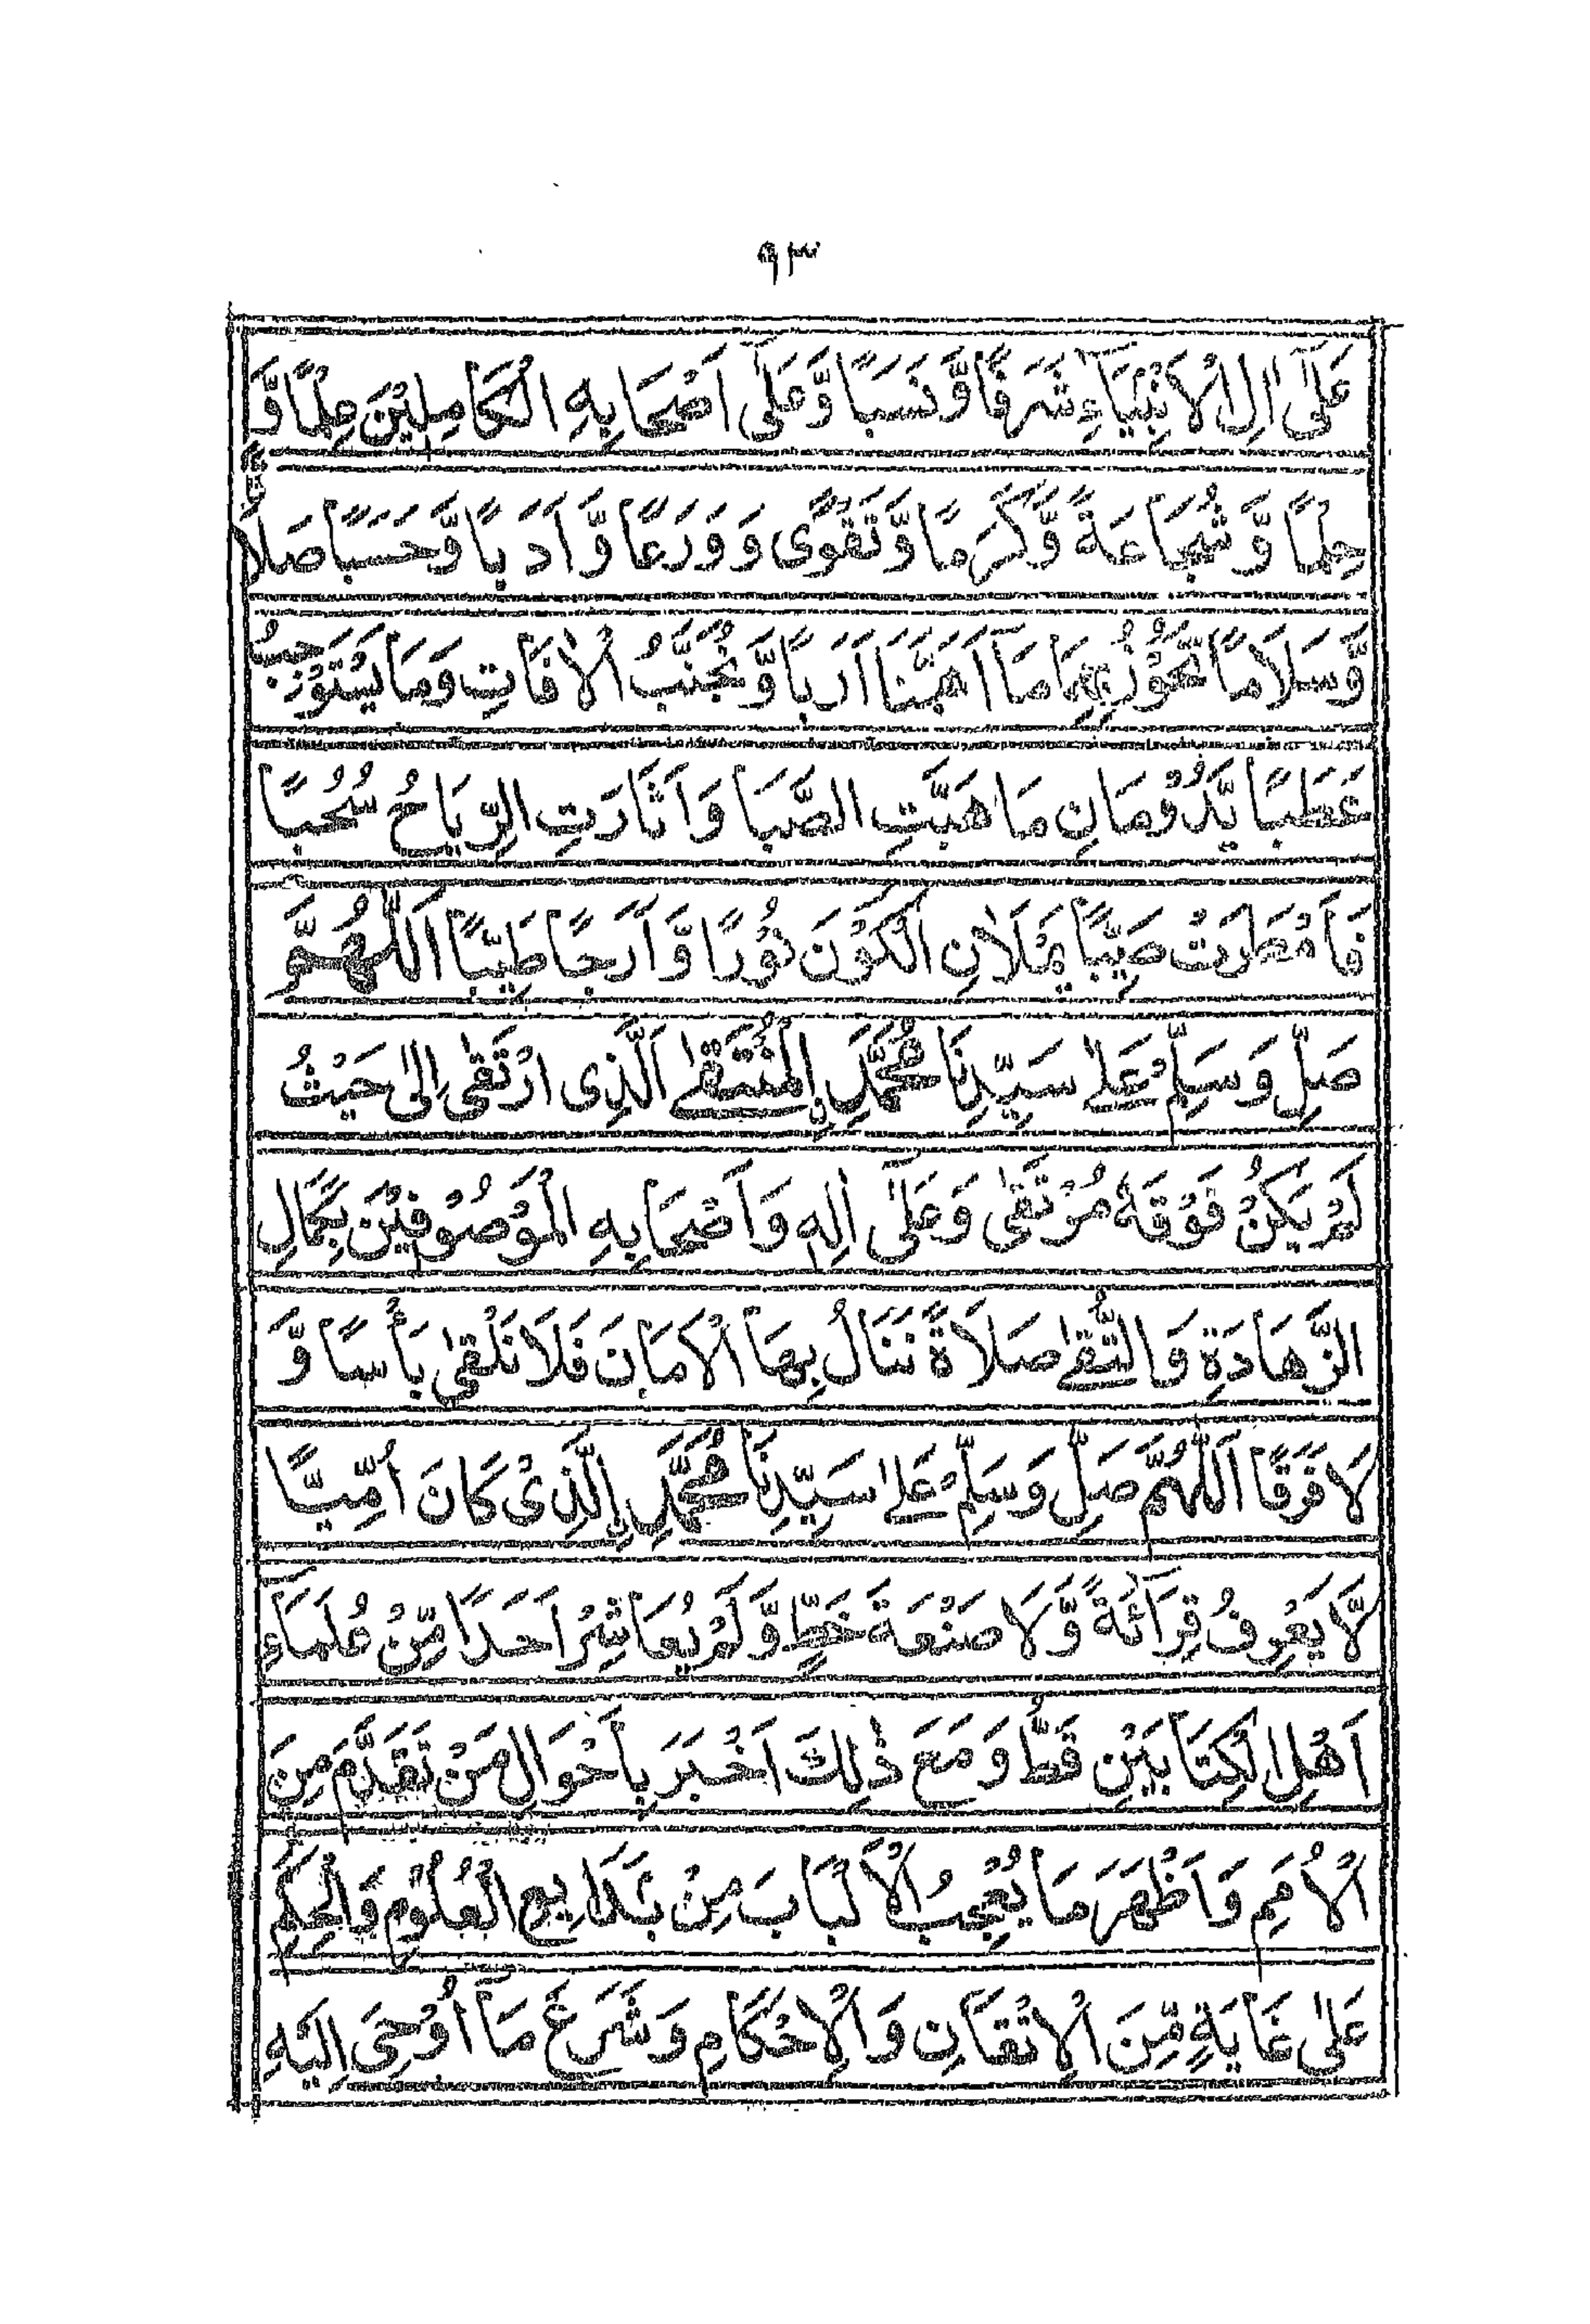 ٩٣
عَلٰٓى اٰلِ الْاَنْبِيَآءِ شَرَفًا وَّنَسَبًا وَّعَلٰٓى اَصْحَابِهِ الْكَامِلِيْنَ عِلْمًا وَّ
حِلْمًا وَّ شُجَاعَةً وَّكَرَمًا وَّتَقْوًى وَ وَرَعًا وَّ اَدَبًا وَّحَسَبًا صَلَاةً
وَّسَلَامًا نَّحُوْزُ بِهِمَا مَا اَهَمَّنَا اَرَبًا وَّ نُجَنَّبُ الْاٰفَاتِ وَمَا يَسْتَوْجِبُ
عَطَبًا يَّدُوْمَانِ مَا هَبَّتِ الصَّبَا وَ اَثَارَتِ الرِّيَاحُ سُحُبًا
فَاَمْطَرَتْ صَيِّبًا يَّمْلَاٰنِ الْكَوْنَ نُوْرًا وَّ اَرَجًا طَيِّبًا اَللّٰهُمَّ
صَلِّ وَسَلِّمْ عَلٰى سَيِّدِنَا مُحَمَّدِ اِلْمُنْتَقٰى الَّذِى ارْتَقٰى اِلٰى حَيْثُ
لَمْ يَكُنْ فَوْقَهٗ مُرْتَقٰى وَعَلٰٓى اٰلِهٖ وَاَصْحَابِهِ الْمَوْصُوْفِيْنَ بِكَمَالِ
الزَّهَادَةِ وَالتُّقٰى صَلَاةً نَنَالُ بِهَا الْاَمَانَ فَلَا نَلْقٰى بَأْسًا وَّ
لَا فَرَقًا اَللّٰهُمَّ صَلِّ وَسَلِّمْ عَلٰى سَيِّدِنَا مُحَمَّدِ اِلَّذِىْ كَانَ اُمِّيًّا
لَّا يَعْرِفُ قِرَآئَةً وَّلَا صَنْعَةَ خَطٍّ وَّ لَمْ يُعَاشِرْ اَحَدًا مِّنْ عُلَمَآءِ
اَهْلِ الْكِتَابَيْنِ قَطُّ وَمَعَ ذٰلِكَ اَخْبَرَ بِاَحْوَالِ مَنْ تَقَدَّمَ مِنَ
الْاُمَمِ وَ اَظْهَرَ مَا يُعْجِبُ الْاَلْبَابَ مِنْ بَدَايِعِ الْعُلُوْمِ وَالْحِكَمِ
عَلٰى غَايَةٍ مِّنَ الْاِتْقَانِ وَالْاِحْكَامِ وَشَرَعَ مَآ اُوْحِىَ اِلَيْهِ